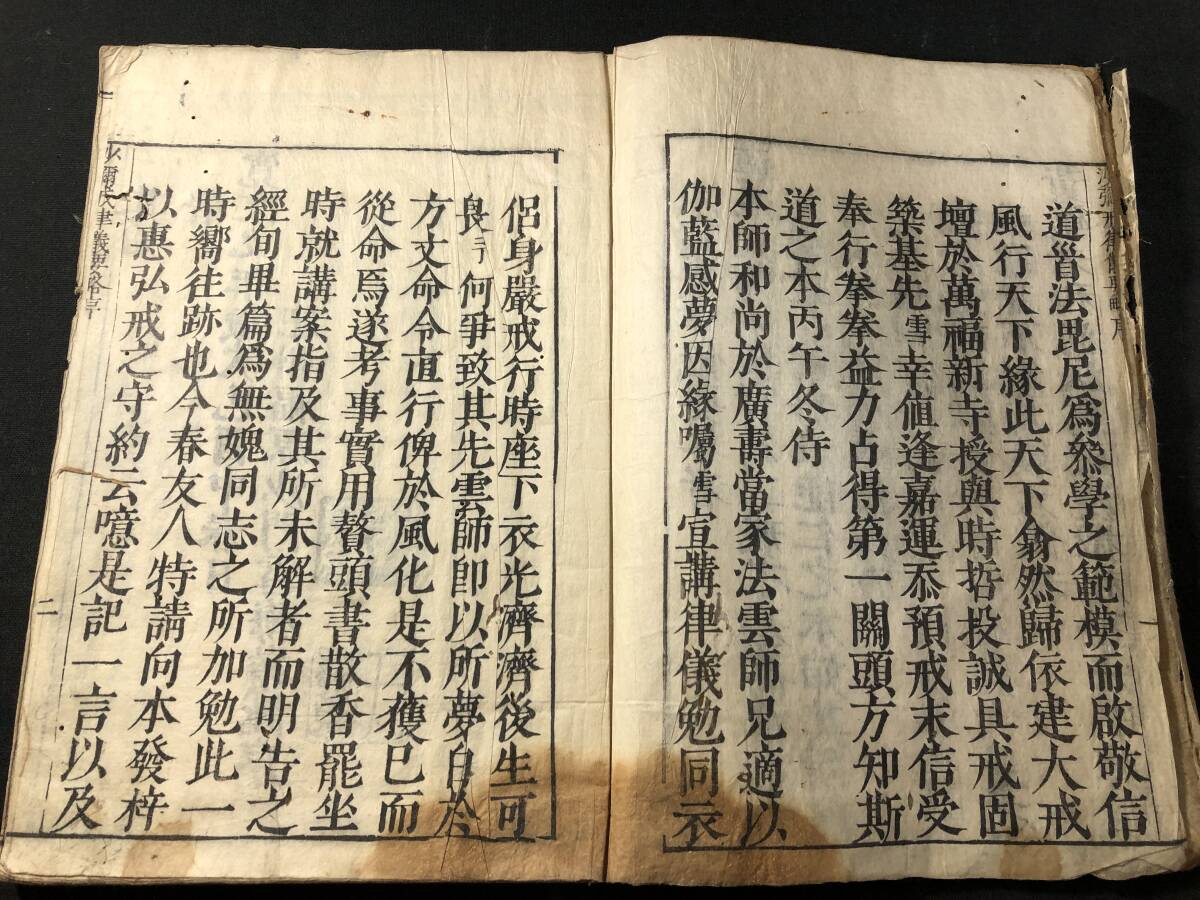 道晉法毘尼爲叅學之範模而啟敬信
風行天下緣此天下翕然歸依建大戒
壇於萬福新寺授與時哲投誠具戒固
築基先雪幸値逢嘉運忝預戒末信受
奉行拳拳益力占得第一關頭方知斯
道之本丙午冬侍
本師和尚於廣壽當家法雲師兄適以
伽藍感夢因緣囑雪宣講律儀勉同衣
侶身嚴戒行時座下衣光濟濟後生可
畏于何爭致其先雲師卽以所夢白於
方丈命令直行俾於風化是不獲已而
從命焉遂考事實用贅頭書散香罷坐
時就講案指及其所未解者而明告之
經句畢篇爲無媿同志之所加勉此一
時嚮徃跡也今春友人特請向本發梓
以惠弘戒之守約云噫是記一言以及
二